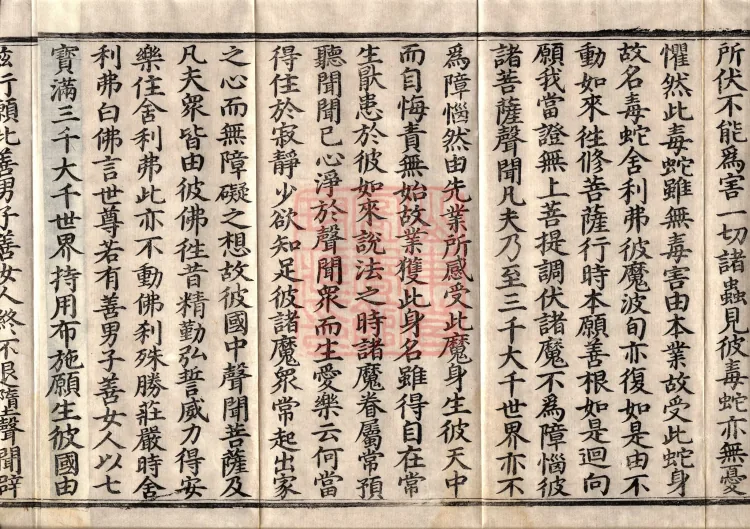 所伏不能爲害一切諸蟲見彼毒蛇亦無憂
懼然此毒蛇雖無毒害由本業故受此蛇身
故名毒蛇舍利弗彼魔波旬亦復如是由不
動如來往修菩薩行時本願善根如是迴向
願我當證無上菩提調伏諸魔不爲障惱彼
諸菩薩聲聞凡夫乃至三千大千世界亦不
爲障惱然由先業所感受此魔身生彼天中
而自悔責無始故業獲此身名雖得自在常
生猒患於彼如來說法之時諸魔眷屬常預
聽聞聞已心淨於聲聞衆而生愛樂云何當
得住於寂靜少欲知足彼諸魔衆常起出家
之心而無障礙之想故彼國中聲聞菩薩及
凡夫衆皆由彼佛往昔精勤弘誓威力得安
樂住舍利弗此亦不動佛刹殊勝莊嚴時舍
利弗白佛言世尊若有善男子善女人以七
寶滿三千大千世界持用布施願生彼國由
兹行願此善男子善女人終不退墮聲聞辟